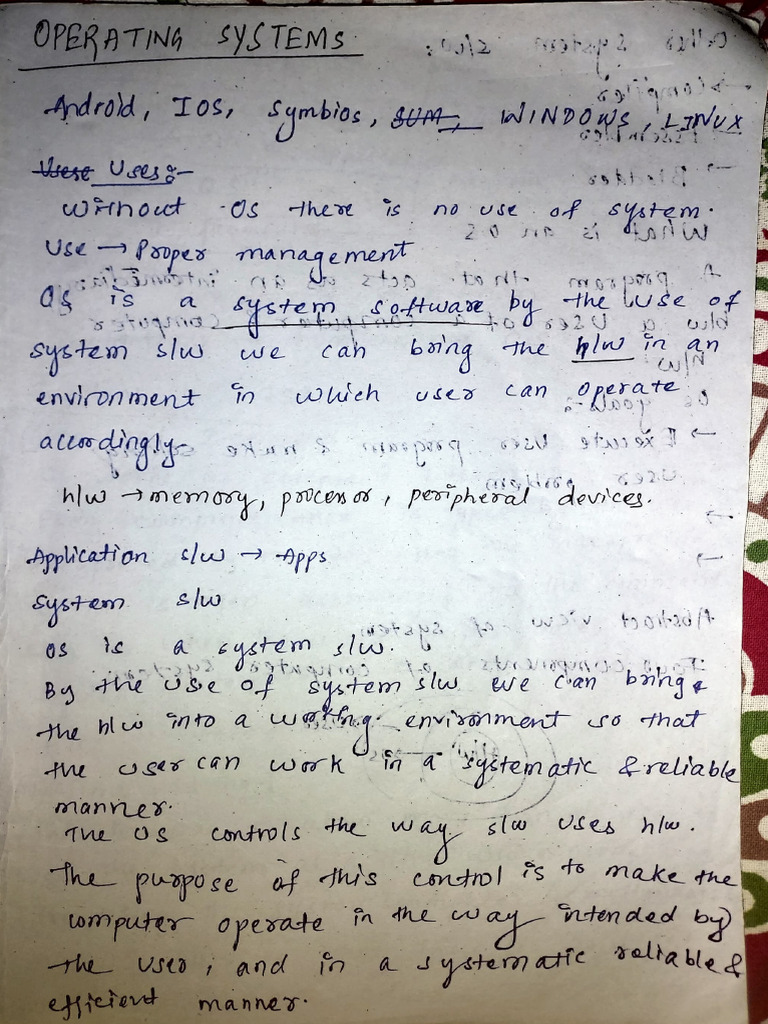 OPERATING SYSTEMS
Android, IOS, Symbios, SUM, WINDOWS, LINUX
Uses Uses:-
Without OS there is no use of system.
Use → Proper management
OS is a system software by the use of
system s/w we can bring the h/w in an
environment in which user can operate
accordingly.
h/w → memory, processor, peripheral devices.
Application s/w → Apps
System s/w
OS is a system s/w.
By the use of system s/w we can bring
the h/w into a working environment so that
the user can work in a systematic & reliable
manner.
The OS controls the way s/w uses h/w.
The purpose of this control is to make the
computer operate in the way intended by
the user, and in a systematic reliable &
efficient manner.